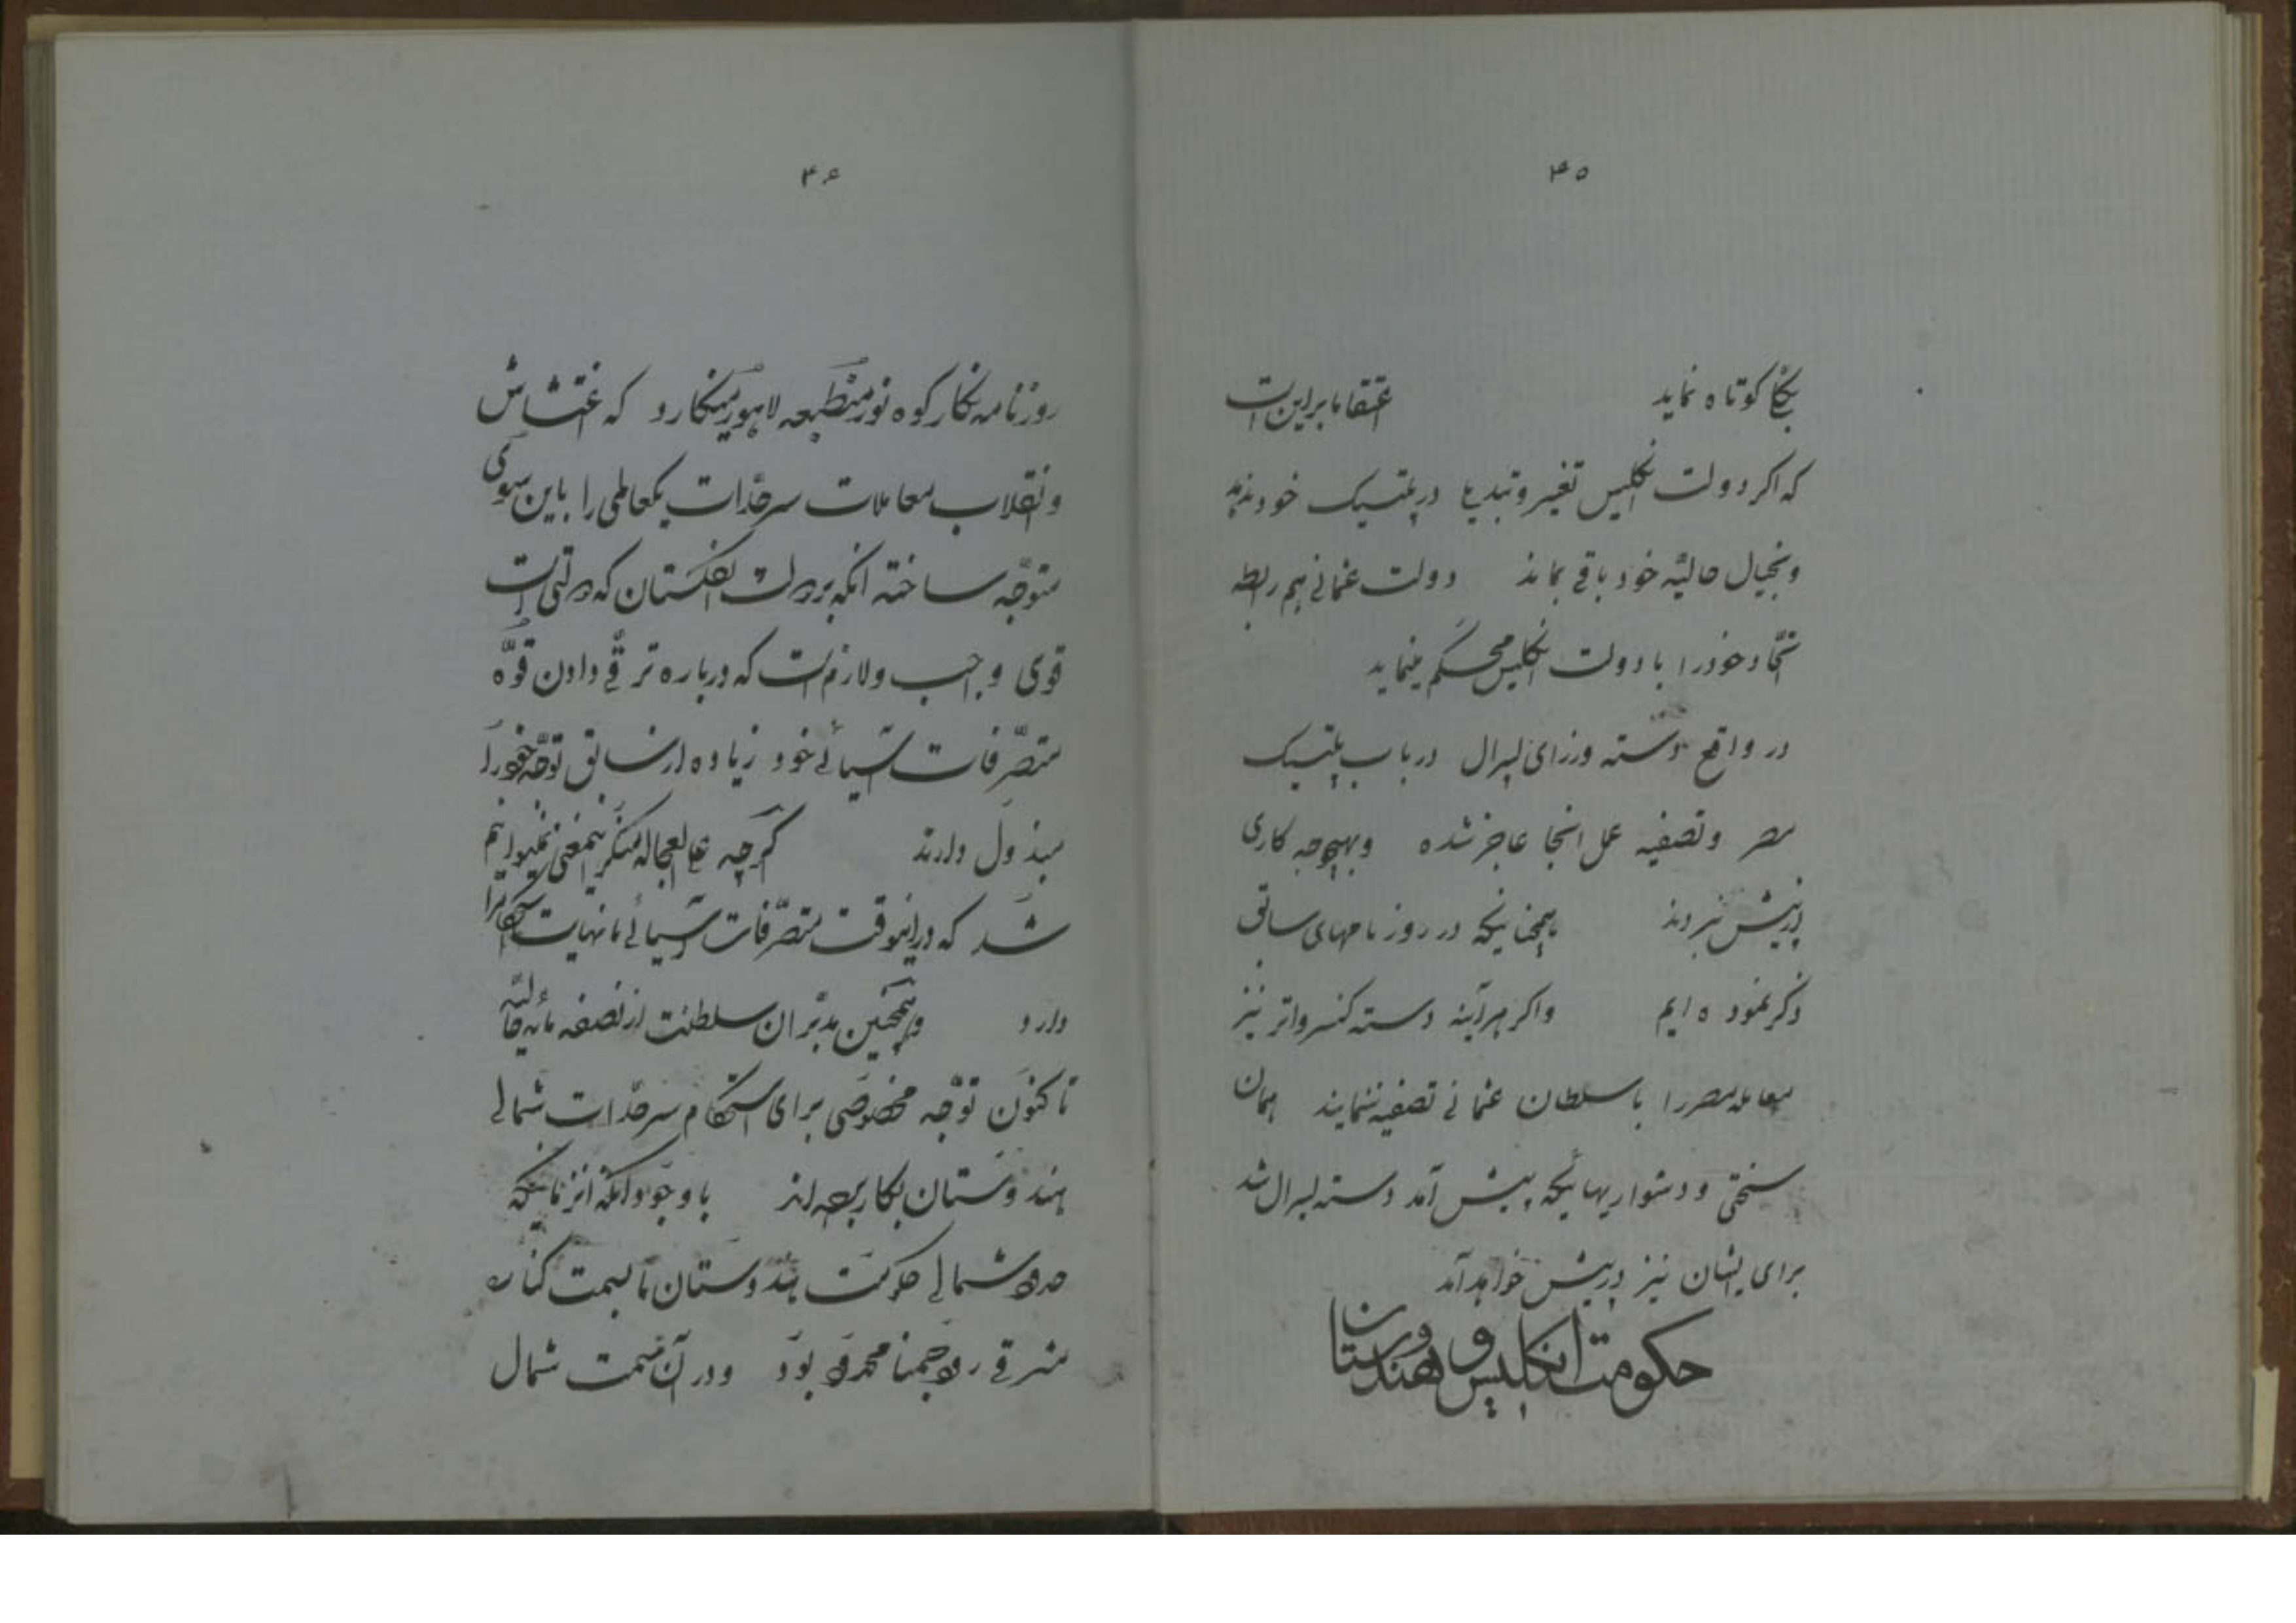 ۴۵
بکجا کوتاه نماید اعتقاد ما بر این است
که اگر دولت انگلیس تغییر و تبدیل در پلتیک خود ندهد
و بخیال حالیّه خود باقی بماند دولت عثمانی هم رابطه
اتّحاد خود را با دولت انگلیس محکم مینماید
در واقع دسته وزرای لبرال در باب پلتیک
مصر و تصفیه عمل انجا عاجز شده و بهیچوجه کاری
از پیش نبردند همچنانکه در روزنامهای سابق
ذکر نموده ایم و اگر هر آینه دسته کنسرواتر نیز
معامله مصر را با سلطان عثمانی تصفیه ننمایند همان
سختی و دشواریهائیکه پیش آمد دسته لبرال شد
برای ایشان نیز در پیش خواهد آمد
حکومت انگلیس و هندوستان
۴۶
روزنامه نگار کوه نور منطبعه لاهور مینگارد که اغتشاش
و انقلاب معاملات سرحدّات یکعالمی را باین سوی
متوجّه ساخته انکه بر دولت انگلستان که دولتی است
قوی واجب و لازم است که درباره ترقّی دادن قوّه
متصرّفات آسیائی خود زیاده از سابق توجّه خود را
مبذول دارند گرچه علی العجاله منکر اینمعنی نمیتوانیم
شد که در اینوقت متصرّفات آسیائی ما نهایت استحکام را
دارد و همچنین مدبّران سلطنت از نصف مائه حالیّه
تا کنون توجّه مخصوصی برای استحکام سرحدّات شمالی
هندوستان بکار برده اند با وجود آنکه در زمانیکه
حدود شمالی حکومت هندوستان ما بسمت کناره
شرقی رود جمنا محدود بود و در آن سمت شمال